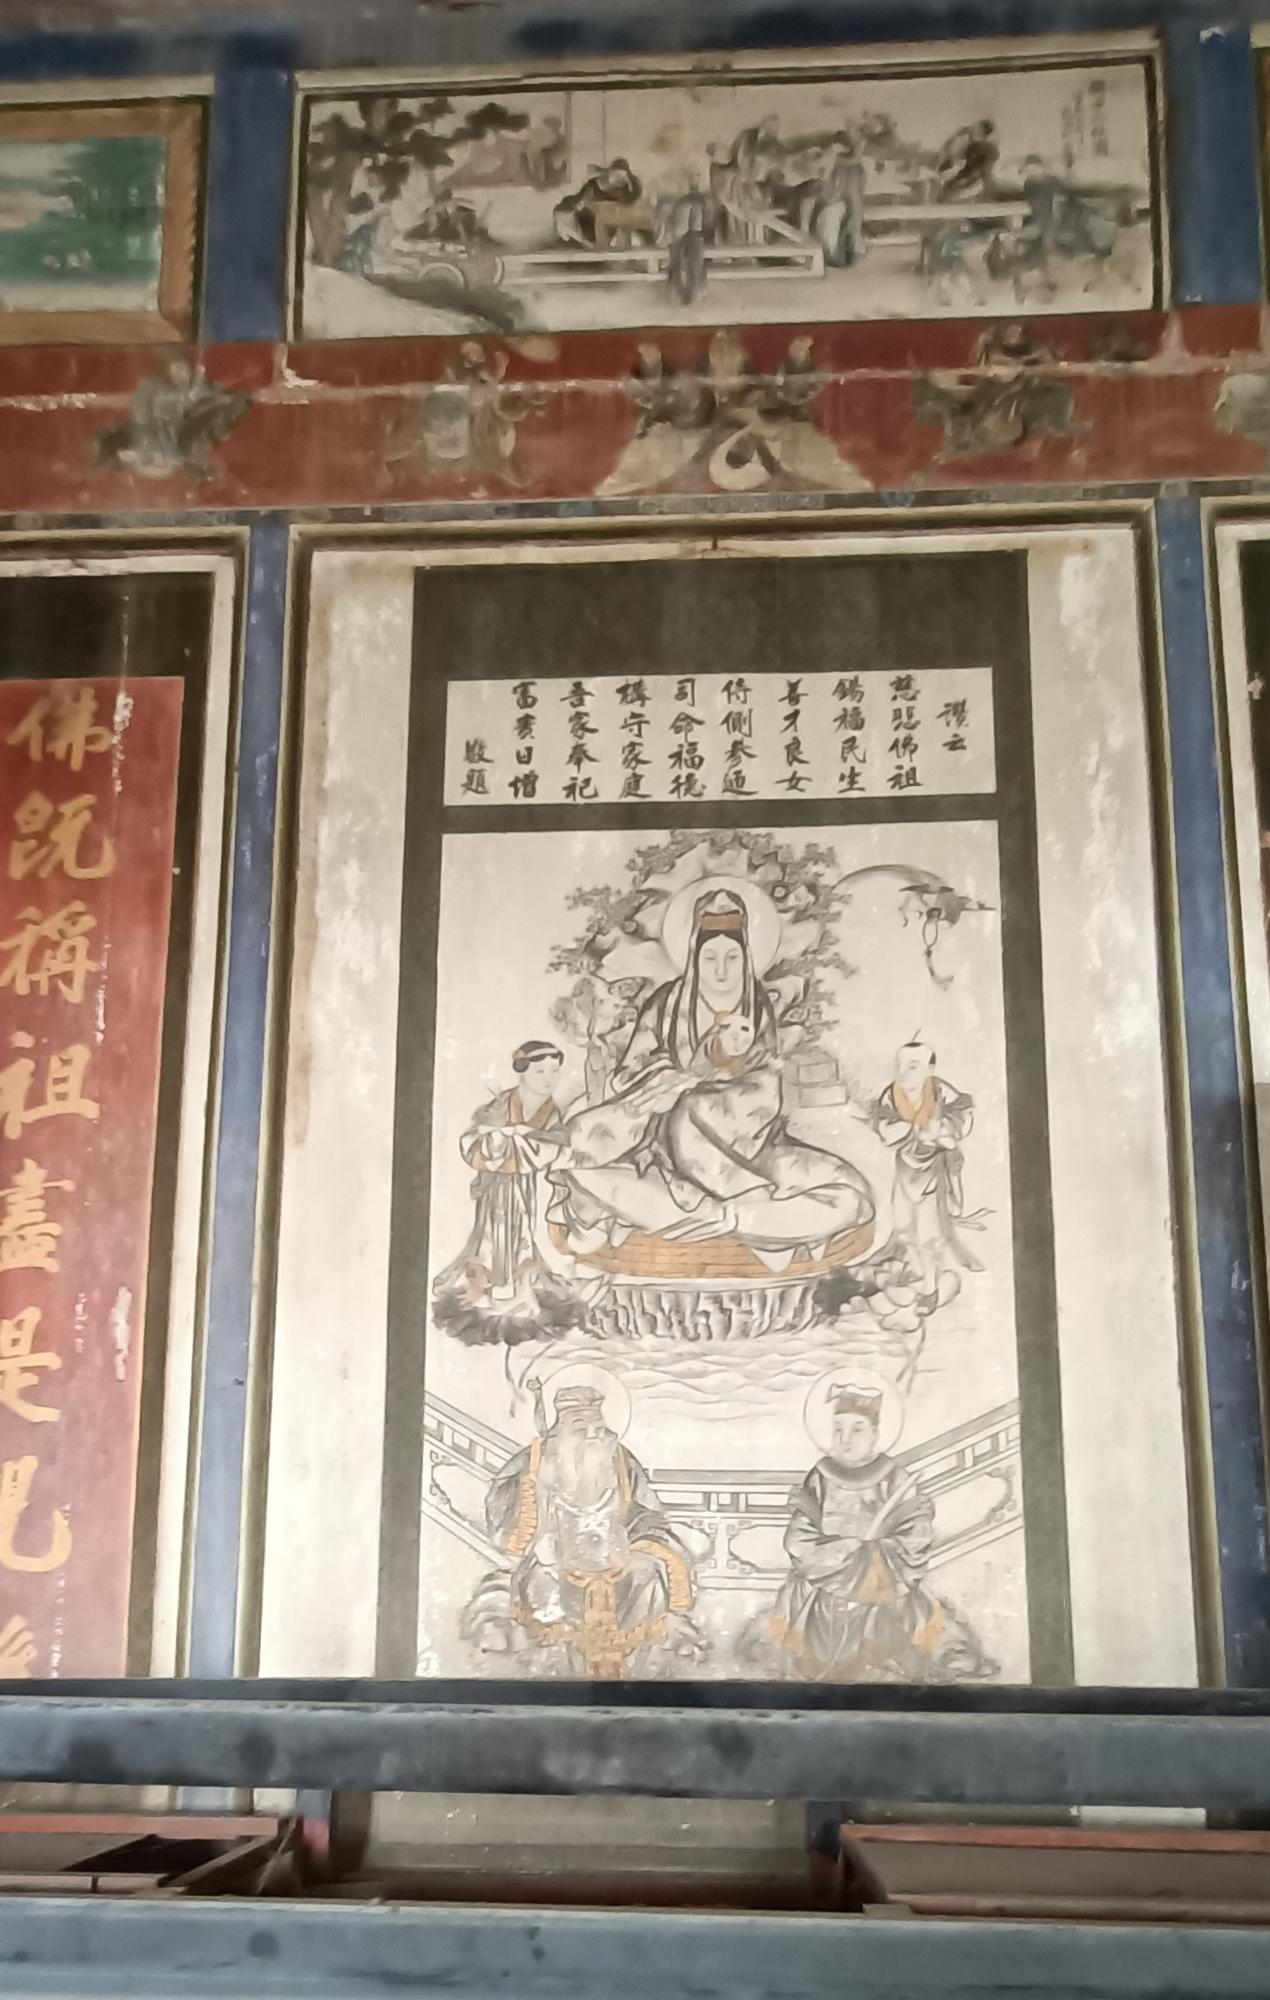 讚云
慈悲佛祖
錫福民生
善才良女
侍側參通
司命福德
構守家庭
吾家奉祀
富貴日增
敬題
佛既稱祖盡是